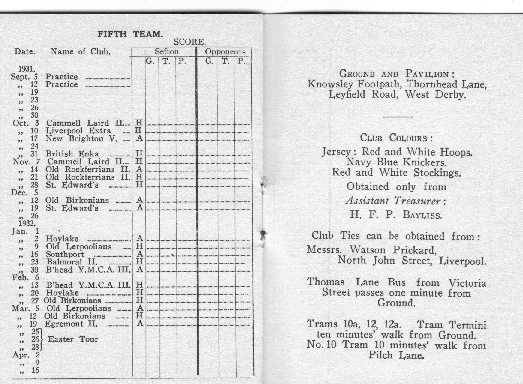 FIFTH TEAM.
SCORE.
Date. Name of Club. Sefton Opponents
G. T. P. G. T. P.
1931.
Sept. 5 Practice
„ 12 Practice
„ 19
„ 23
„ 26
„ 30
Oct. 3 Cammell Laird II. H
„ 10 Liverpool Extra H
„ 17 New Brighton V. A
„ 24
„ 31 British Enka H
Nov. 7 Cammell Laird II. H
„ 14 Old Rockferrians II. A
„ 21 Old Rockferrians II. H
„ 28 St. Edward's H
Dec. 5
„ 12 Old Birkonians A
„ 19 St. Edward's A
„ 26
1932.
Jan. 1
„ 2 Hoylake A
„ 9 Old Lerpoolians H
„ 16 Southport A
„ 23 Balmoral II. H
„ 30 B'head Y.M.C.A. III. A
Feb. 6
„ 13 B'head Y.M.C.A. III. H
„ 20 Hoylake H
„ 27 Old Birkonians H
Mar. 5 Old Lerpoolians A
„ 12 Old Birkonians H
„ 19 Egremont II. A
„ 25
„ 26 Easter Tour
„ 28
Apr. 2
„ 9
„ 16
GROUND AND PAVILION :
Knowsley Footpath, Thornhead Lane,
Leyfield Road, West Derby.
CLUB COLOURS :
Jersey : Red and White Hoops.
Navy Blue Knickers.
Red and White Stockings.
Obtained only from
Assistant Treasurer :
H. F. P. BAYLISS.
Club Ties can be obtained from :
Messrs. Watson Prickard,
North John Street, Liverpool.
Thomas Lane Bus from Victoria
Street passes one minute from
Ground.
Trams 10a, 12, 12a. Tram Termini
ten minutes' walk from Ground.
No. 10 Tram 10 minutes' walk from
Pilch Lane.